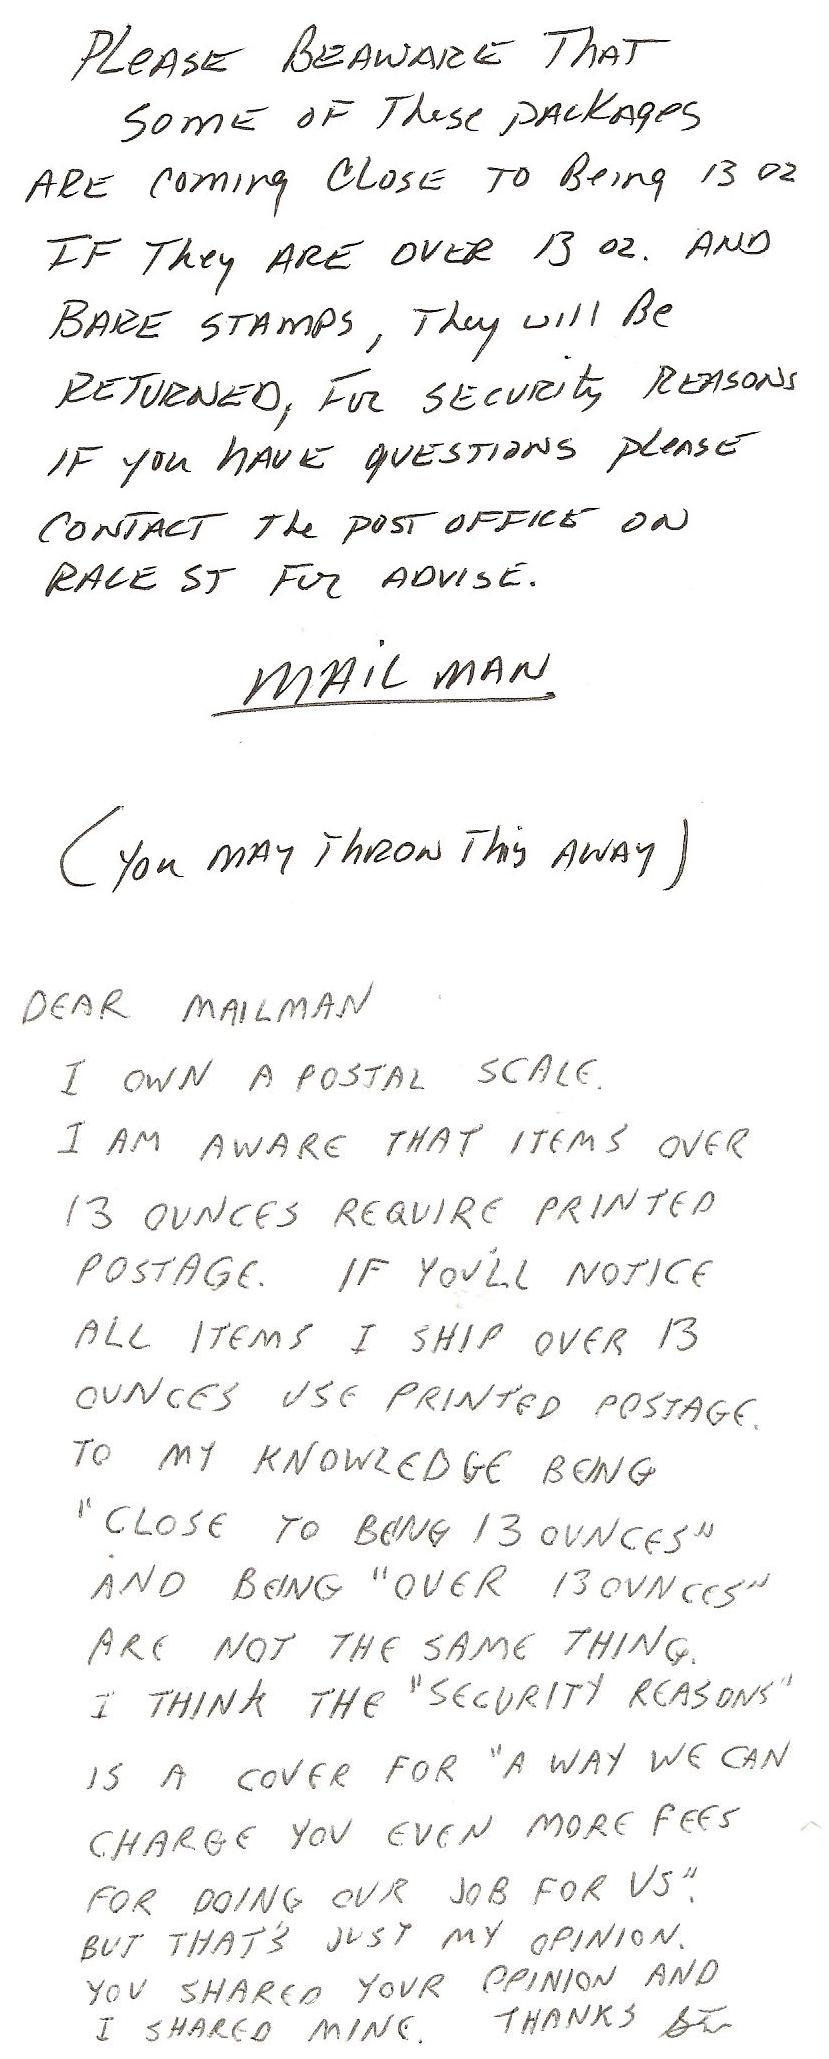 PLEASE BEAWARE THAT
SOME OF These packages
ARE coming CLOSE TO Being 13 oz
IF They ARE OVER 13 oz. AND
BARE STAMPS, They will Be
RETURNED, For SECURITY REASONS
IF you HAVE QUESTIONS please
CONTACT The POST OFFICE ON
RACE ST For ADVISE.
MAIL MAN
(You MAY THROW This AWAY)
DEAR MAILMAN
I OWN A POSTAL SCALE.
I AM AWARE THAT ITEMS OVER
13 OUNCES REQUIRE PRINTED
POSTAGE. IF YOU'LL NOTICE
ALL ITEMS I SHIP OVER 13
OUNCES USE PRINTED POSTAGE.
TO MY KNOWLEDGE BEING
"CLOSE TO BEING 13 OUNCES"
AND BEING "OVER 13 OUNCES"
ARE NOT THE SAME THING.
I THINK THE "SECURITY REASONS"
IS A COVER FOR "A WAY WE CAN
CHARGE YOU EVEN MORE FEES
FOR DOING OUR JOB FOR US".
BUT THAT'S JUST MY OPINION.
YOU SHARED YOUR OPINION AND
I SHARED MINE. THANKS